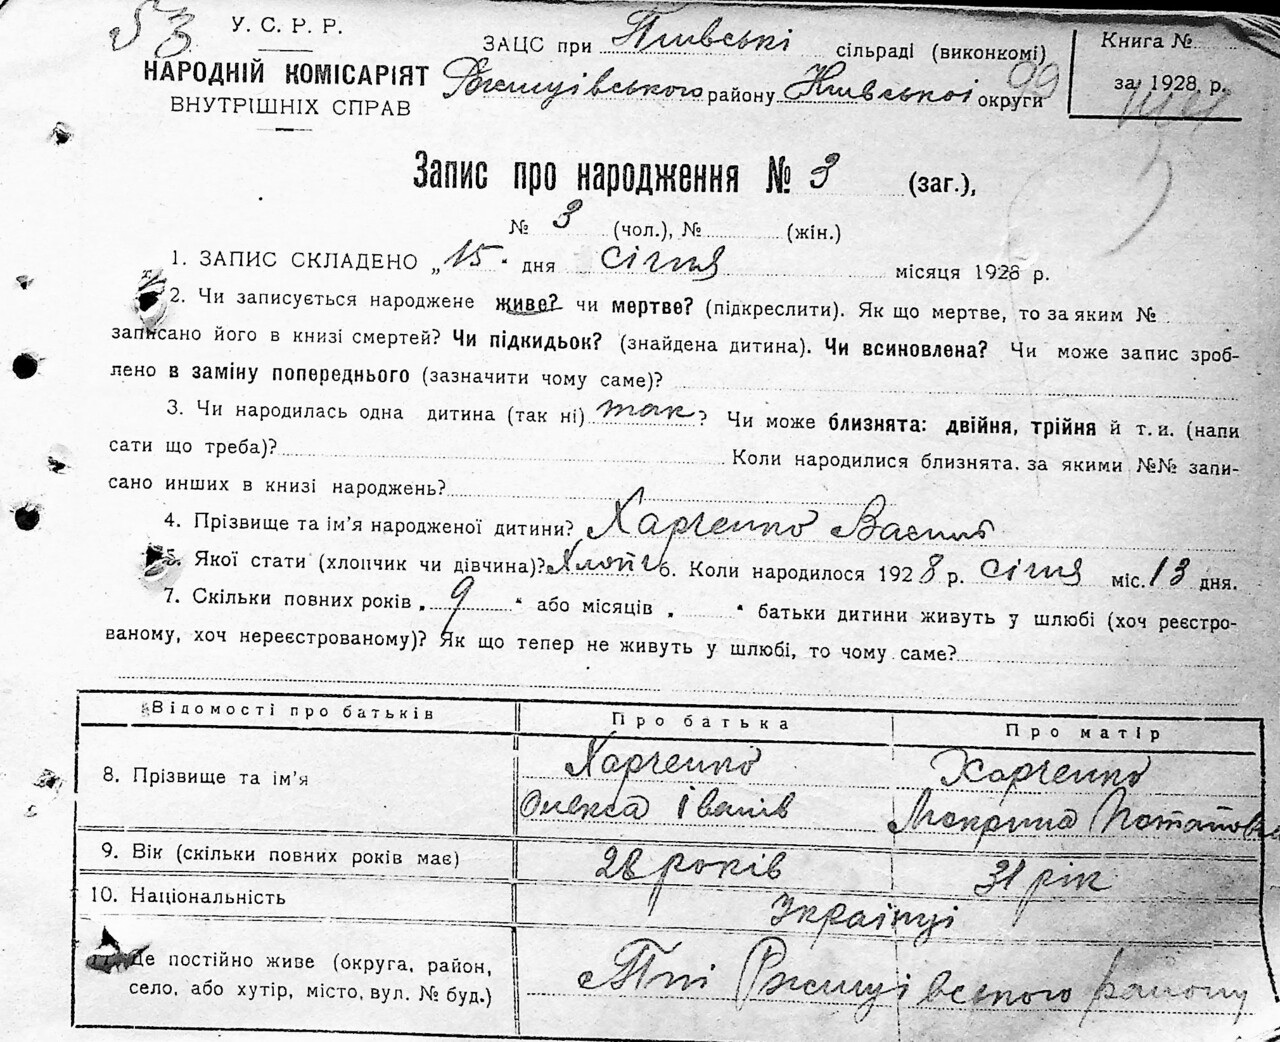 53
У. С. Р. Р.
НАРОДНІЙ КОМІСАРІЯТ
ВНУТРІШНІХ СПРАВ
ЗАЦС при Пиївські сільраді (виконкомі)
Ржищівського району Київської округи
99
Книга №
за 1928 р.
Запис про народження № 3 (заг.),
№ 3 (чол.), № (жін.)
1. ЗАПИС СКЛАДЕНО „15" дня січня місяця 1928 р.
2. Чи записується народжене живе? чи мертве? (підкреслити). Як що мертве, то за яким №
записано його в книзі смертей? Чи підкидьок? (знайдена дитина). Чи всиновлена? Чи може запис зроб-
лено в заміну попереднього (зазначити чому саме)?
3. Чи народилась одна дитина (так ні) так? Чи може близнята: двійня, трійня й т. и. (напи
сати що треба)? Коли народилися близнята. за якими №№ запи-
сано инших в книзі народжень?
4. Прізвище та ім'я народженої дитини? Харченко Василь
5. Якої стати (хлопчик чи дівчина)? Хлопч 6. Коли народилося 1928 р. січня міс. 13 дня.
7. Скільки повних років „9" або місяців „ " батьки дитини живуть у шлюбі (хоч реєстро-
ваному, хоч нереєстрованому)? Як що тепер не живуть у шлюбі, то чому саме?
Відомості про батьків Про батька Про матір
8. Прізвище та ім'я Харченко Харченко
Олекса Іванів Мокрина Потаповна
9. Вік (скільки повних років має) 28 років 31 рік
10. Національність Українці
11. Де постійно живе (округа, район,
село, або хутір, місто, вул. № буд.) Пиї Ржищівського району